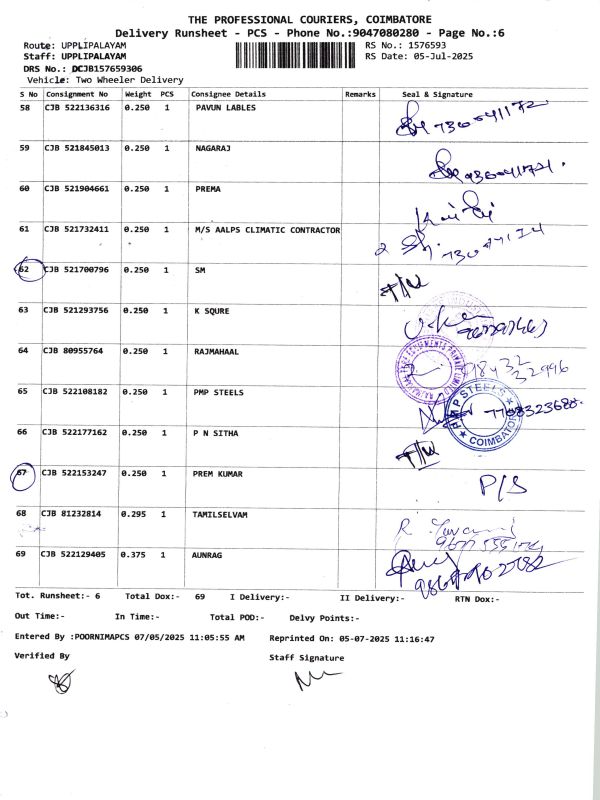 THE PROFESSIONAL COURIERS, COIMBATORE
Delivery Runsheet - PCS - Phone No.:9047080280 - Page No.:6
Route: UPPLIPALAYAM RS No.: 1576593
Staff: UPPLIPALAYAM RS Date: 05-Jul-2025
DRS No.: DCJB157659306
Vehicle: Two Wheeler Delivery
S No Consignment No Weight PCS Consignee Details Remarks Seal & Signature
58 CJB 522136316 0.250 1 PAVUN LABLES
59 CJB 521845013 0.250 1 NAGARAJ
60 CJB 521904661 0.250 1 PREMA
61 CJB 521732411 0.250 1 M/S AALPS CLIMATIC CONTRACTOR
62 CJB 521700796 0.250 1 SM
63 CJB 521293756 0.250 1 K SQURE
64 CJB 80955764 0.250 1 RAJMAHAAL
65 CJB 522108182 0.250 1 PMP STEELS 7708323688
PMP STEELS COIMBATORE
66 CJB 522177162 0.250 1 P N SITHA
67 CJB 522153247 0.250 1 PREM KUMAR P/S
68 CJB 81232814 0.295 1 TAMILSELVAM
69 CJB 522129405 0.375 1 AUNRAG
Tot. Runsheet:- 6 Total Dox:- 69 I Delivery:- II Delivery:- RTN Dox:-
Out Time:- In Time:- Total POD:- Delvy Points:-
Entered By :POORNIMAPCS 07/05/2025 11:05:55 AM Reprinted On: 05-07-2025 11:16:47
Verified By Staff Signature